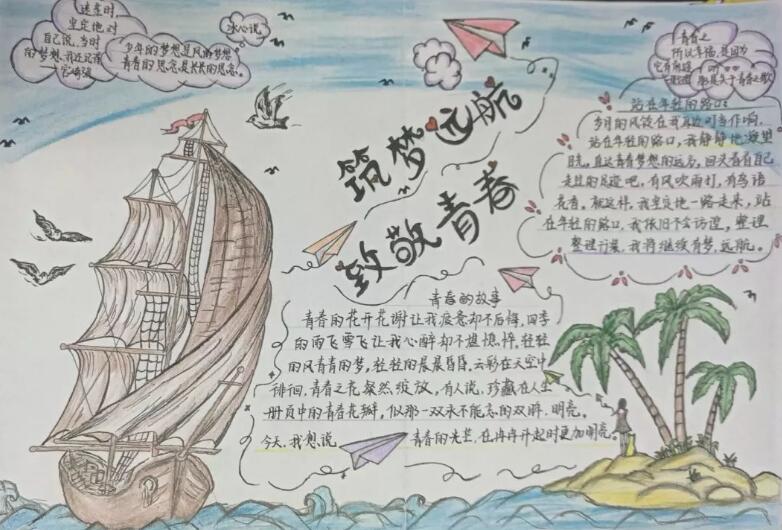 迷茫时,
坚定地对
自己说,当时
的梦想,我还记得
宫崎骏
冰心说
少年的梦想是风的梦想
青春的思念是长长的思念。
筑梦远航
致敬青春
青春之
所以幸福,是因为
它有前途
都是关于青春之歌
站在年轻的路口
岁月的风铃在我耳边叮当作响,
站在年轻的路口,我静静地凝望
目光,直达青春梦想的远方,回头看看自己
走过的足迹吧,有风吹雨打,有鸟语
花香。就这样,我坚定地一路走来,站
在年轻的路口,我依旧不会彷徨,整理
整理行装,我将继续青梦,远航。
青春的故事
青春的花开花谢让我疲惫却不后悔,四季
的雨飞雪飞让我心醉却不堪憔悴,轻轻
的风青青的梦,轻轻的晨晨昏昏,云彩在天空中
徘徊,青春之花粲然绽放,有人说,珍藏在人生
册页中的青春花瓣,似那一双永不能忘的双眸,明亮。
今天,我想说
青春的光芒,在冉冉升起时更加明亮。